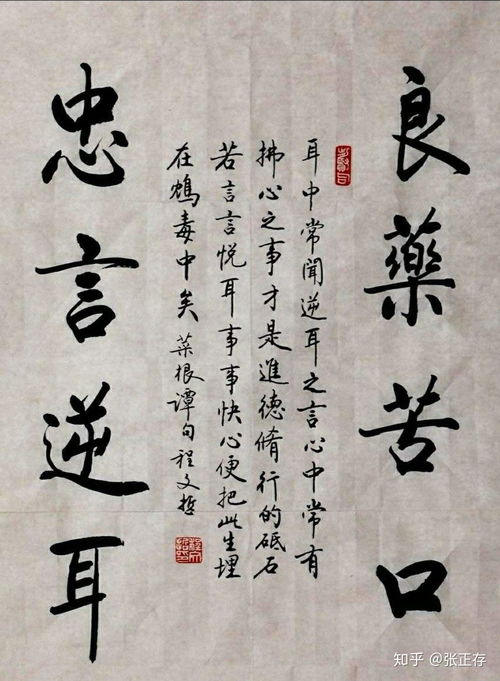 良藥苦口
耳中常聞逆耳之言心中常有
拂心之事才是進德脩行的砥石
若言言悅耳事事快心便把此生埋
在鴆毒中矣 菜根谭句程文哲
忠言逆耳
知乎 @张正存